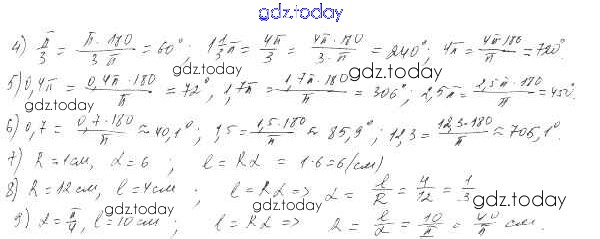 gdz.today
4) π/3 = π·180/3π = 60°; 1 1/3 π = 4π/3 = 4π·180/3·π = 240°; 4π = 4π·180/π = 720°.
gdz.today gdz.today
5) 0,4π = 0,4π·180/π = 72°; 1,7π = 1,7π·180/π = 306°; 2,5π = 2,5π·180/π = 450°.
gdz.today gdz.today
6) 0,7 = 0,7·180/π ≈ 40,1°; 1,5 = 1,5·180/π ≈ 85,9°; 12,3 = 12,3·180/π ≈ 705,1°.
7) R = 1 см, α = 6; l = Rα = 1·6 = 6 (см)
gdz.today gdz.today
8) R = 12 см, l = 4 см; l = Rα => α = l/R = 4/12 = 1/3.
gdz.today gdz.today
9) α = π/4, l = 10 см; l = Rα => R = l/α = 10/π = 40/π см.
gdz.today gdz.today